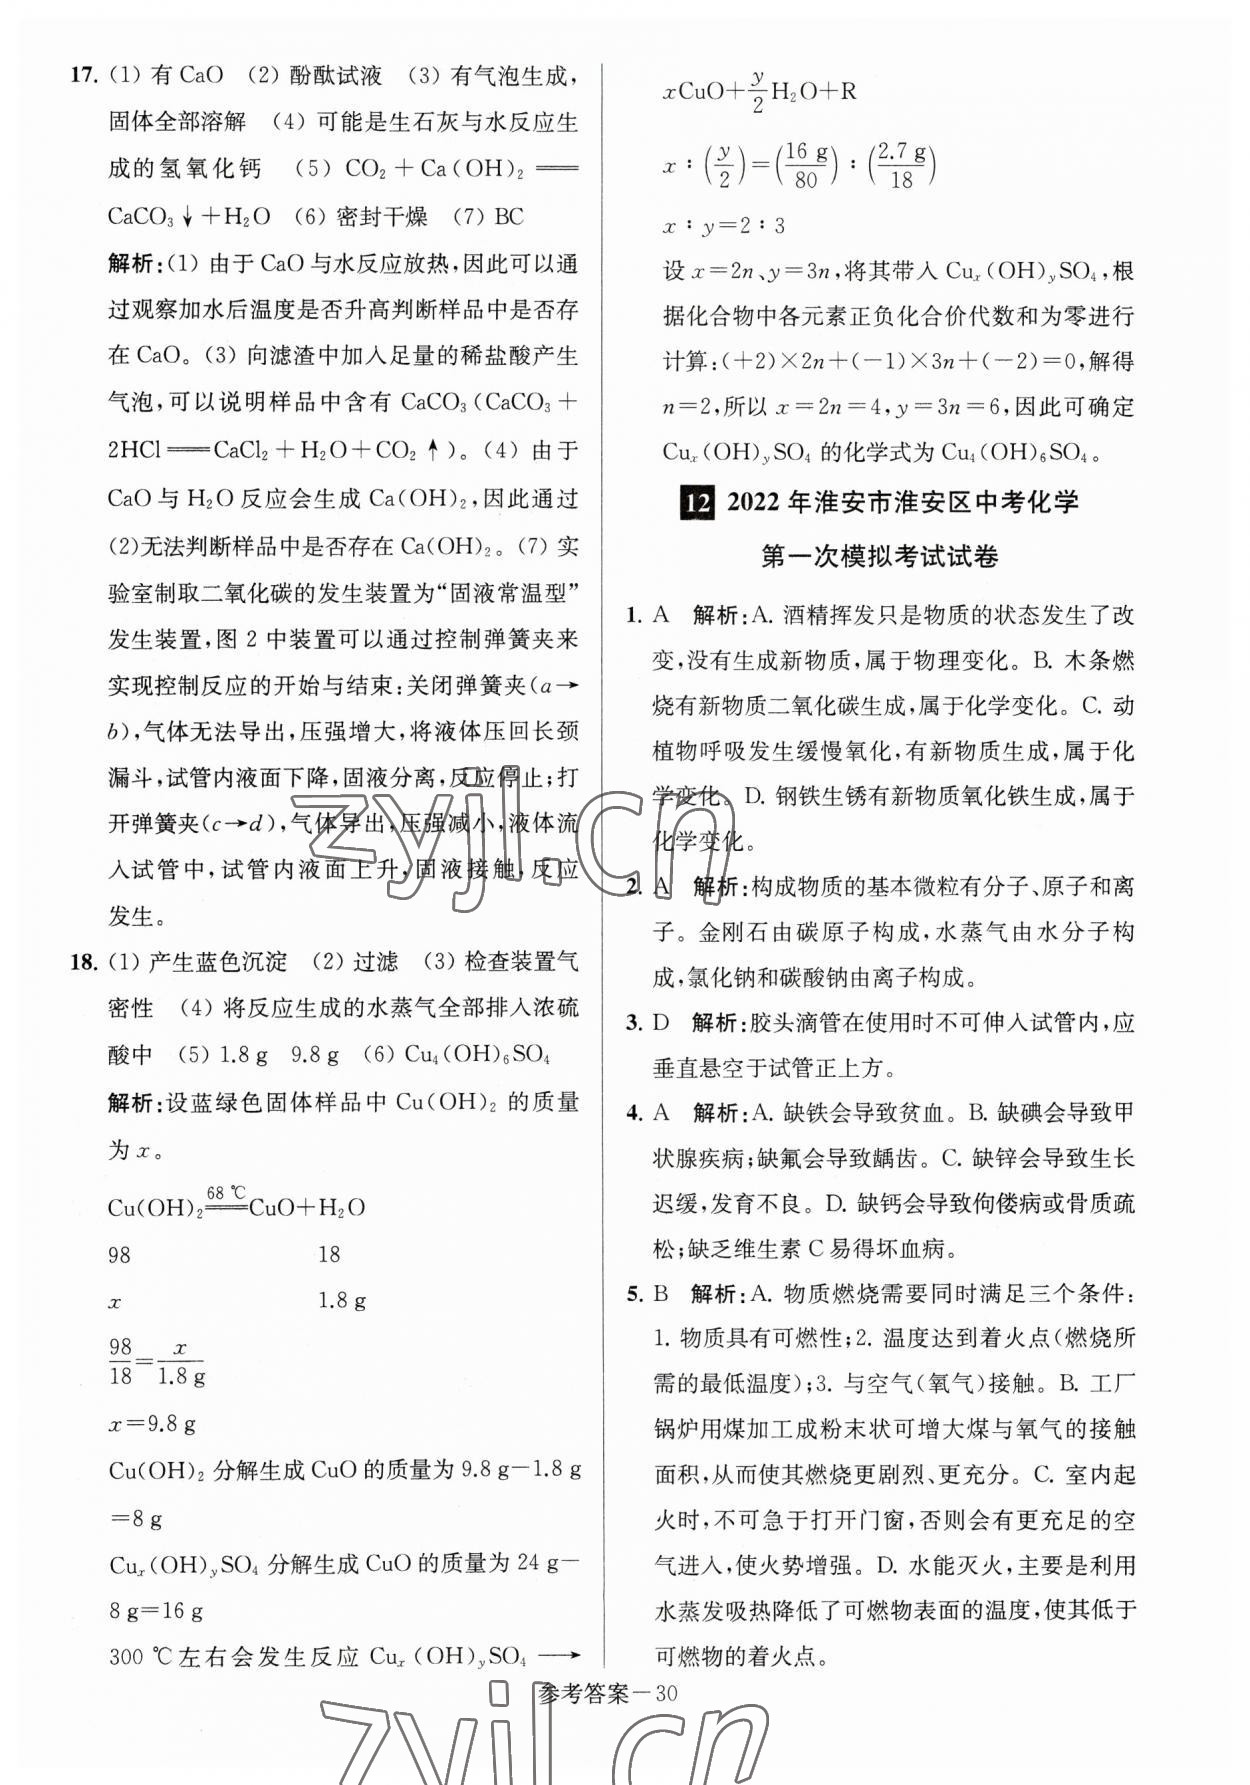 17. (1) 有 CaO (2) 酚酞试液 (3) 有气泡生成,
固体全部溶解 (4) 可能是生石灰与水反应生
成的氢氧化钙 (5) CO₂+Ca(OH)₂══
CaCO₃↓+H₂O (6) 密封干燥 (7) BC
解析:(1) 由于 CaO 与水反应放热,因此可以通
过观察加水后温度是否升高判断样品中是否存
在 CaO。(3) 向滤渣中加入足量的稀盐酸产生
气泡,可以说明样品中含有 CaCO₃(CaCO₃+
2HCl══CaCl₂+H₂O+CO₂↑)。(4) 由于
CaO 与 H₂O 反应会生成 Ca(OH)₂,因此通过
(2)无法判断样品中是否存在 Ca(OH)₂。(7) 实
验室制取二氧化碳的发生装置为“固液常温型”
发生装置,图 2 中装置可以通过控制弹簧夹来
实现控制反应的开始与结束:关闭弹簧夹(a→
b),气体无法导出,压强增大,将液体压回长颈
漏斗,试管内液面下降,固液分离,反应停止;打
开弹簧夹(c→d),气体导出,压强减小,液体流
入试管中,试管内液面上升,固液接触,反应
发生。
18. (1) 产生蓝色沉淀 (2) 过滤 (3) 检查装置气
密性 (4) 将反应生成的水蒸气全部排入浓硫
酸中 (5) 1.8 g 9.8 g (6) Cu₄(OH)₆SO₄
解析:设蓝绿色固体样品中 Cu(OH)₂ 的质量
为 x。
Cu(OH)₂ ══(68 ℃) CuO+H₂O
98 18
x 1.8 g
98/18=x/1.8 g
x=9.8 g
Cu(OH)₂ 分解生成 CuO 的质量为 9.8 g−1.8 g
=8 g
Cuₓ(OH)ᵧSO₄ 分解生成 CuO 的质量为 24 g−
8 g=16 g
300 ℃左右会发生反应 Cuₓ(OH)ᵧSO₄ ⟶
xCuO+y/2 H₂O+R
x∶(y/2)=(16 g/80)∶(2.7 g/18)
x∶y=2∶3
设 x=2n、y=3n,将其带入 Cuₓ(OH)ᵧSO₄,根
据化合物中各元素正负化合价代数和为零进行
计算:(+2)×2n+(−1)×3n+(−2)=0,解得
n=2,所以 x=2n=4,y=3n=6,因此可确定
Cuₓ(OH)ᵧSO₄ 的化学式为 Cu₄(OH)₆SO₄。
12 2022 年淮安市淮安区中考化学
第一次模拟考试试卷
1. A 解析:A. 酒精挥发只是物质的状态发生了改
变,没有生成新物质,属于物理变化。B. 木条燃
烧有新物质二氧化碳生成,属于化学变化。C. 动
植物呼吸发生缓慢氧化,有新物质生成,属于化
学变化。D. 钢铁生锈有新物质氧化铁生成,属于
化学变化。
2. A 解析:构成物质的基本微粒有分子、原子和离
子。金刚石由碳原子构成,水蒸气由水分子构
成,氯化钠和碳酸钠由离子构成。
3. D 解析:胶头滴管在使用时不可伸入试管内,应
垂直悬空于试管正上方。
4. A 解析:A. 缺铁会导致贫血。B. 缺碘会导致甲
状腺疾病;缺氟会导致龋齿。C. 缺锌会导致生长
迟缓,发育不良。D. 缺钙会导致佝偻病或骨质疏
松;缺乏维生素 C 易得坏血病。
5. B 解析:A. 物质燃烧需要同时满足三个条件:
1. 物质具有可燃性;2. 温度达到着火点(燃烧所
需的最低温度);3. 与空气(氧气)接触。B. 工厂
锅炉用煤加工成粉末状可增大煤与氧气的接触
面积,从而使其燃烧更剧烈、更充分。C. 室内起
火时,不可急于打开门窗,否则会有更充足的空
气进入,使火势增强。D. 水能灭火,主要是利用
水蒸发吸热降低了可燃物表面的温度,使其低于
可燃物的着火点。
参考答案—30
zyjl.cn
zyjl.cn